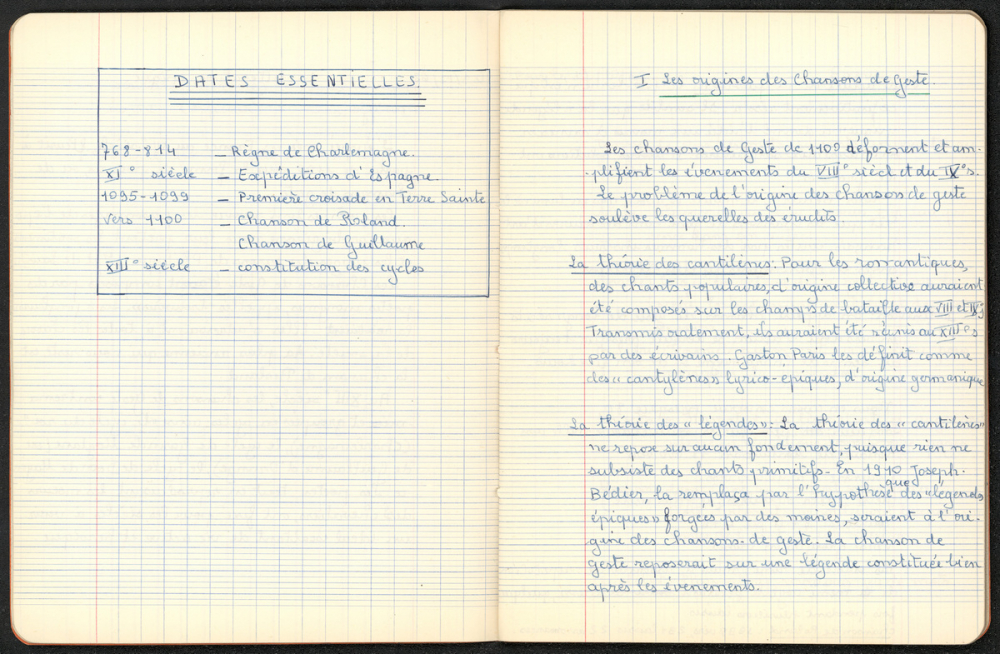 DATES ESSENTIELLES.
768-814 — Règne de Charlemagne.
XI° siècle — Expéditions d'Espagne.
1095-1099 — Première croisade en Terre Sainte
Vers 1100 — Chanson de Roland.
Chanson de Guillaume
XIII° siècle — constitution des cycles
I Les origines des Chansons de Geste.
Les chansons de Geste de 1109 déforment et am-
plifient les évènements du VIII° siècle et du IX° s.
Le problème de l'origine des Chansons de geste
soulève les querelles des érudits.
La théorie des cantilènes: Pour les romantiques,
des chants populaires, d'origine collective auraient
été composés sur les champs de bataille aux VIII et IX° s
Transmis oralement, ils auraient été réunis au XII° s
par des écrivains. Gaston Paris les définit comme
des « cantylènes » lyrico-épiques, d'origine germanique
La théorie des « légendes »: La théorie des « cantilènes »
ne repose sur aucun fondement, puisque rien ne
subsiste des chants primitifs - En 1910 Joseph.
Bédier, la remplaça par l'hypothèse que des « légendes
épiques » forgées par des moines, seraient à l'ori-
gine des chansons de geste. La chanson de
geste reposerait sur une légende constituée bien
après les évenements.